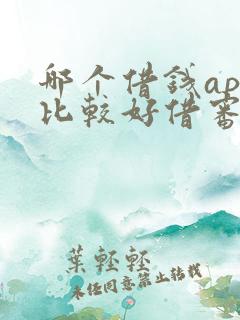 哪个借钱ap
比较好借审
葉輕輕
未经同意禁止转载